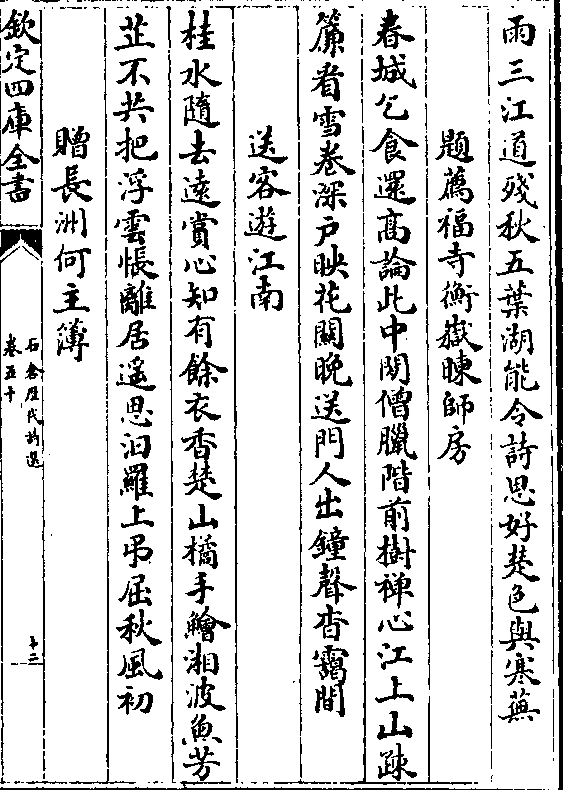 雨三江道殘秋五葉湖能令詩思好楚色與寒蕪
題薦福寺衡嶽暕師房
春城乞食還髙論此中閒僧臘階前樹禅心江上山疎
簾看雪卷深户映花關晚送門人出鐘聲杳靄間
送客遊江南
桂水隨去遠賞心知有餘衣香楚山橘手鱠湘波魚芳
芷不共把浮雲悵離居遥思汨羅上弔屈秋風初
贈長洲何主簿
欽定四庫全書
石倉歷代詩選
卷五十
十二